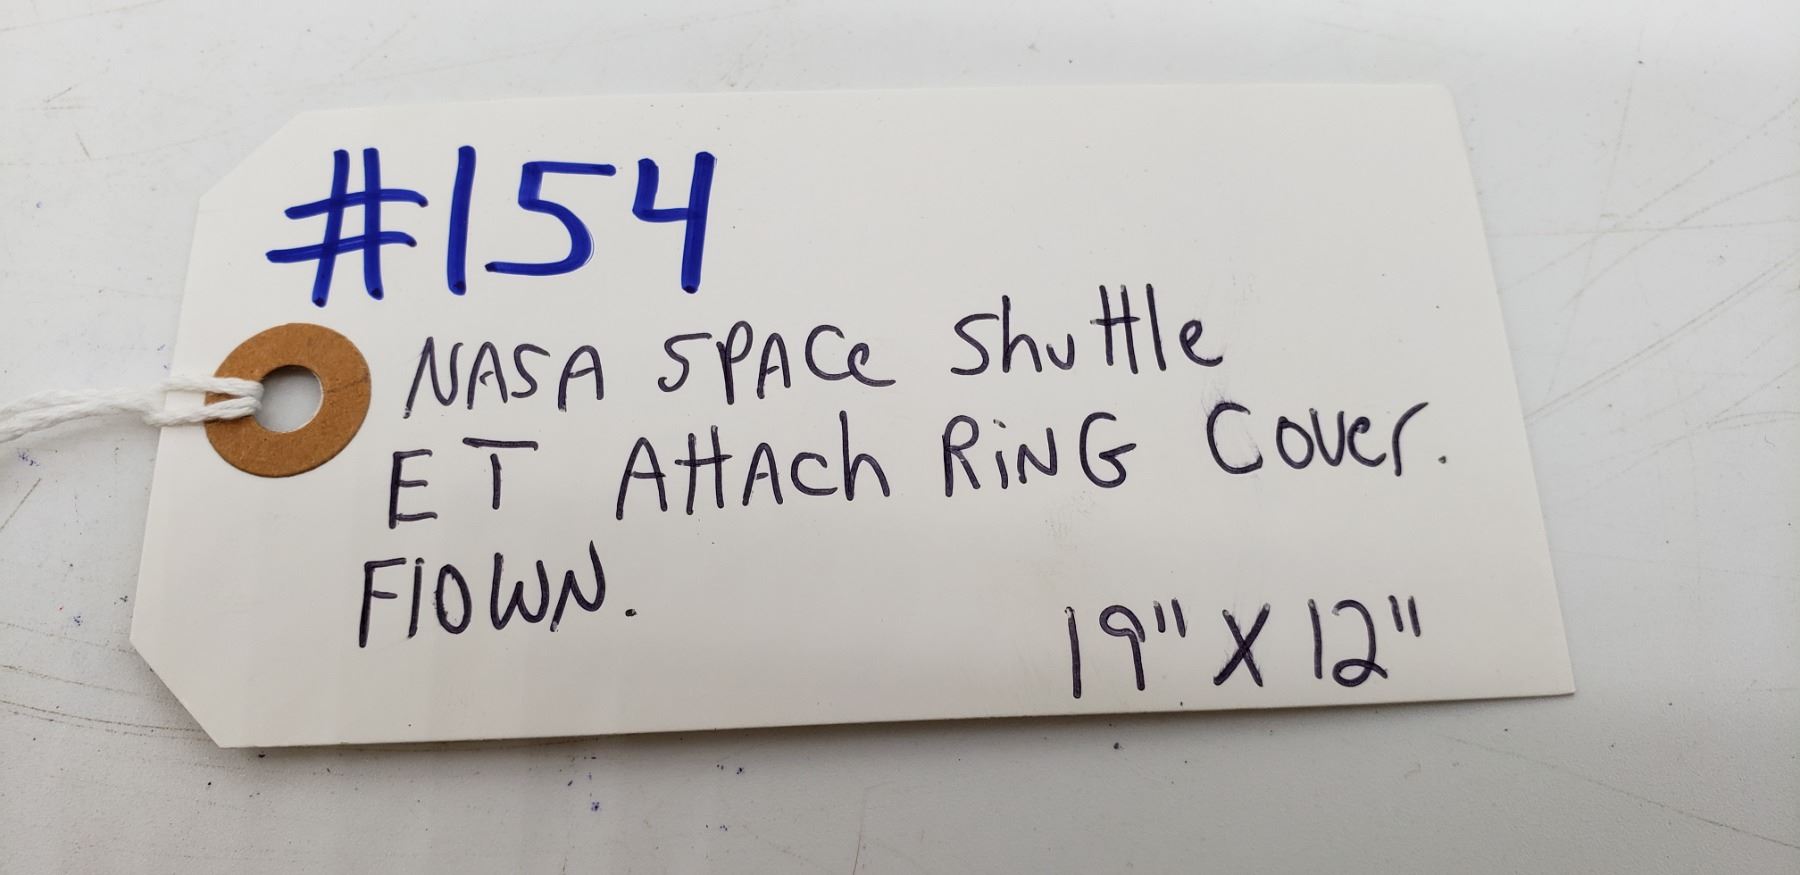 #154
NASA SPACe Shuttle
ET AttAch RiNG Cover.
FlOWN.
19" X 12"